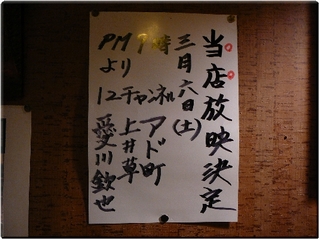 当店放映決定
三月六日(土)
PM9時
より
12チャンネル
アド町
上井草
愛川欽也